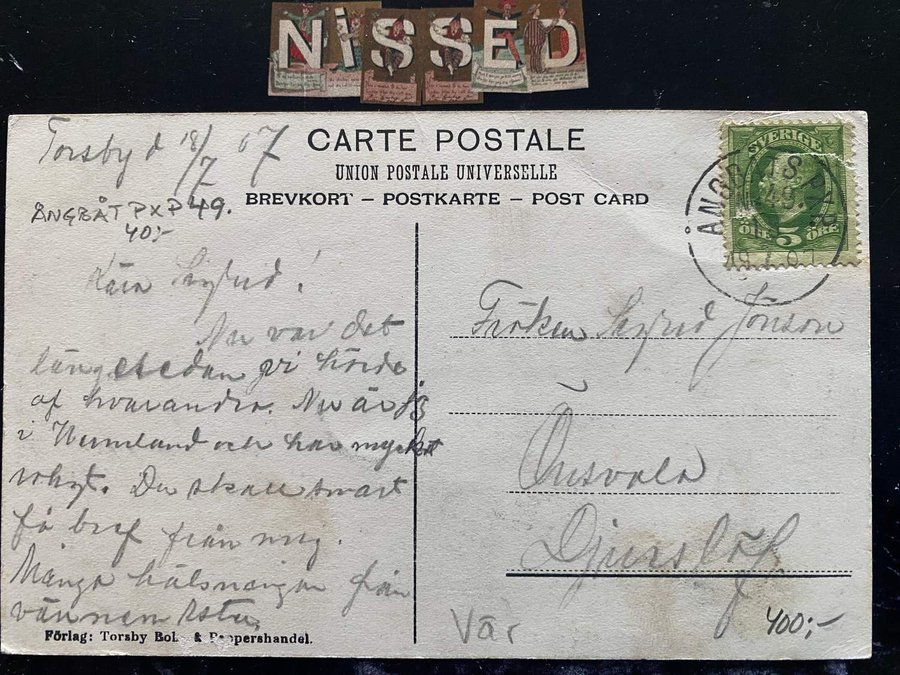 NISSED
Torsby d 18/7 07
CARTE POSTALE
UNION POSTALE UNIVERSELLE
BREVKORT – POSTKARTE – POST CARD
ÅNGBÅT PXP 49.
40:-
SVERIGE
5
ÖRE ÖRE
ÅNGBÅTS PXP
N 49.
19 7 07
Kära Sigrid!
Nu var det
länge sedan vi hörde
af hvarandra. Nu är jag
i Wermland och har mycket
roligt. Du skall snart
få bref från mig.
Många hälsningar från
vännen Ester
Förlag: Torsby Bok- & Pappershandel.
Fröken Sigrid Jönson
Önsvala
Djurslöf
Vär
400:-